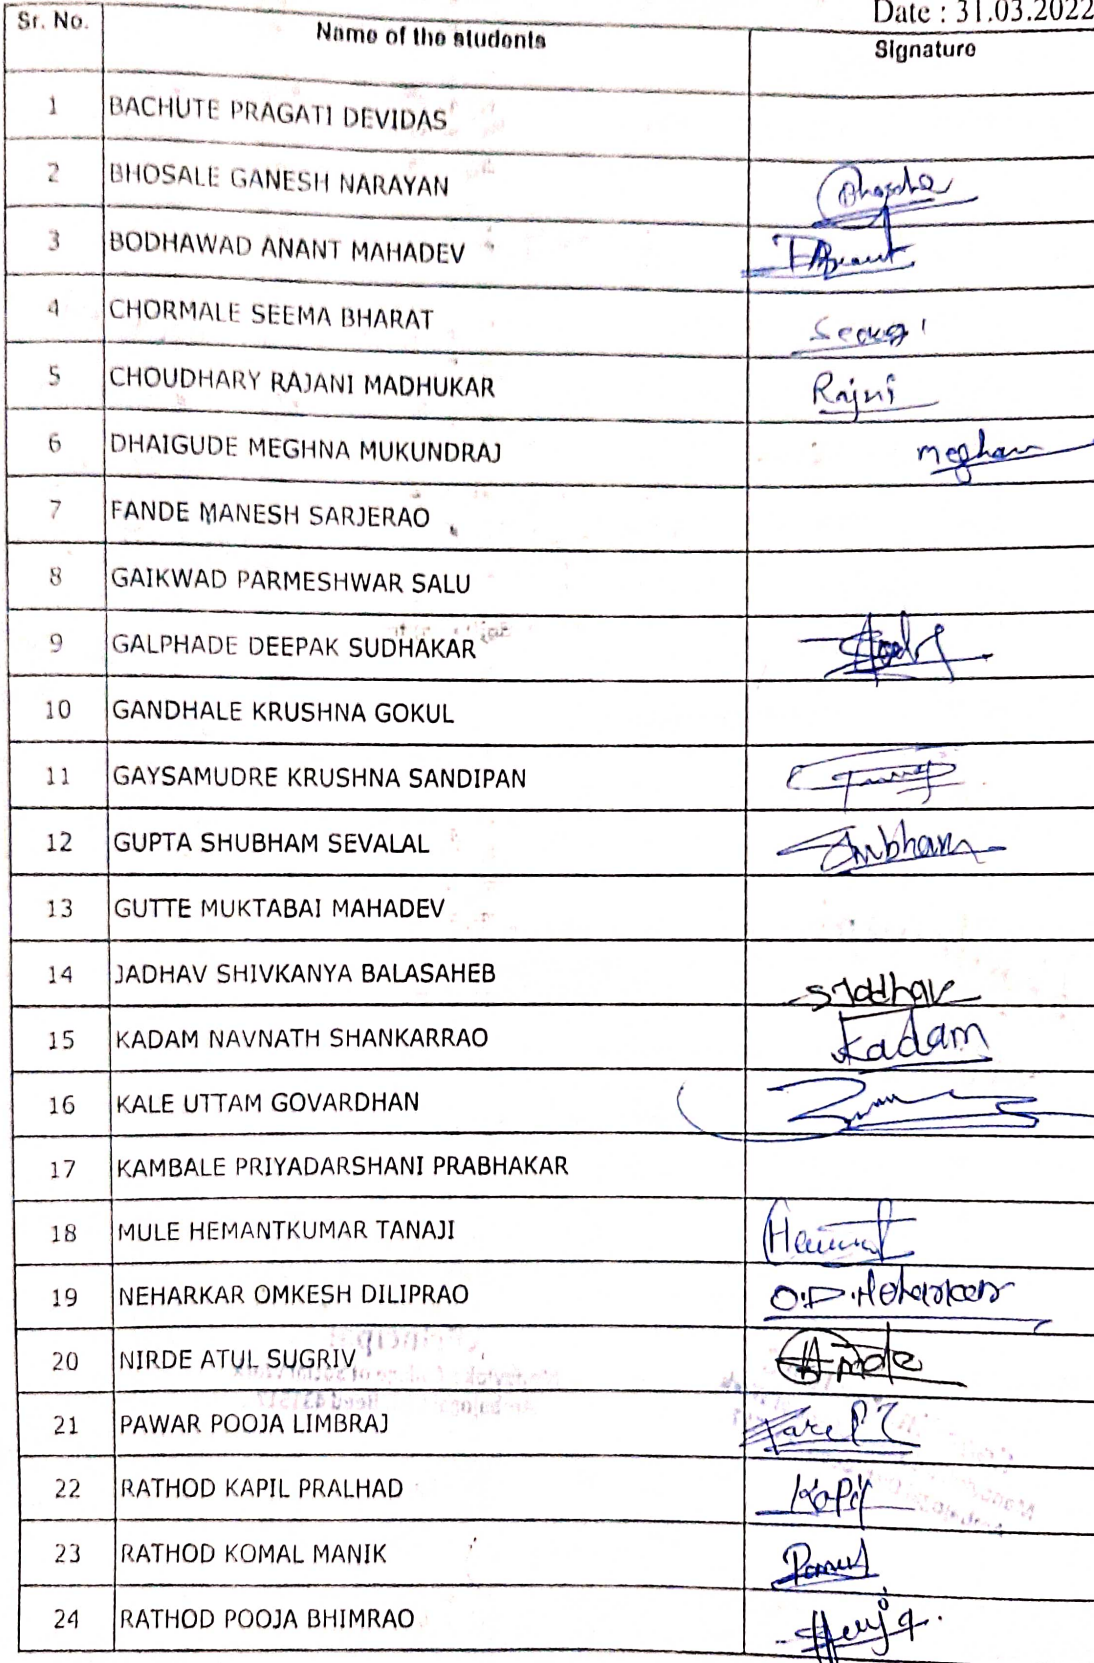 Date : 31.03.2022
Sr. No. Name of the students Signature
1 BACHUTE PRAGATI DEVIDAS
2 BHOSALE GANESH NARAYAN
3 BODHAWAD ANANT MAHADEV
4 CHORMALE SEEMA BHARAT
5 CHOUDHARY RAJANI MADHUKAR Rajni
6 DHAIGUDE MEGHNA MUKUNDRAJ
7 FANDE MANESH SARJERAO
8 GAIKWAD PARMESHWAR SALU
9 GALPHADE DEEPAK SUDHAKAR
10 GANDHALE KRUSHNA GOKUL
11 GAYSAMUDRE KRUSHNA SANDIPAN
12 GUPTA SHUBHAM SEVALAL Shubham
13 GUTTE MUKTABAI MAHADEV
14 JADHAV SHIVKANYA BALASAHEB
15 KADAM NAVNATH SHANKARRAO Kadam
16 KALE UTTAM GOVARDHAN
17 KAMBALE PRIYADARSHANI PRABHAKAR
18 MULE HEMANTKUMAR TANAJI
19 NEHARKAR OMKESH DILIPRAO O.D.Neharkar
20 NIRDE ATUL SUGRIV
21 PAWAR POOJA LIMBRAJ
22 RATHOD KAPIL PRALHAD Kapil
23 RATHOD KOMAL MANIK
24 RATHOD POOJA BHIMRAO